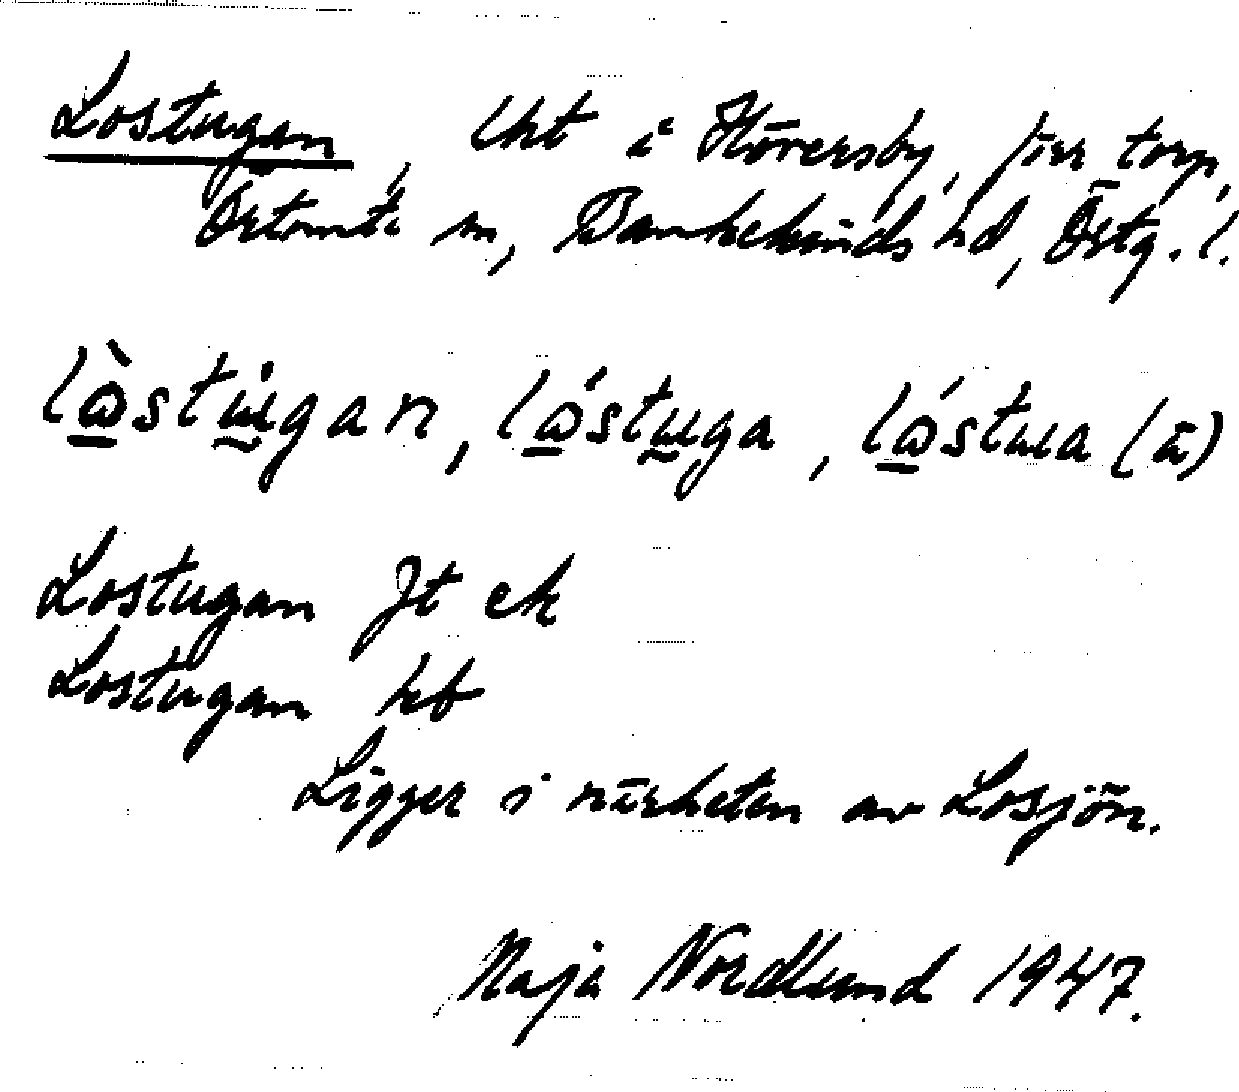 Lostugan, lht i Höversby, förr torp,
Örtomta sn, Bankekinds hd, Östg. l.
lòstùgan, lóstuga, lóstua (ā)
Lostugan Jt ek
Lostugan hb
Ligger i närheten av Losjön.
Maja Nordlund 1947.